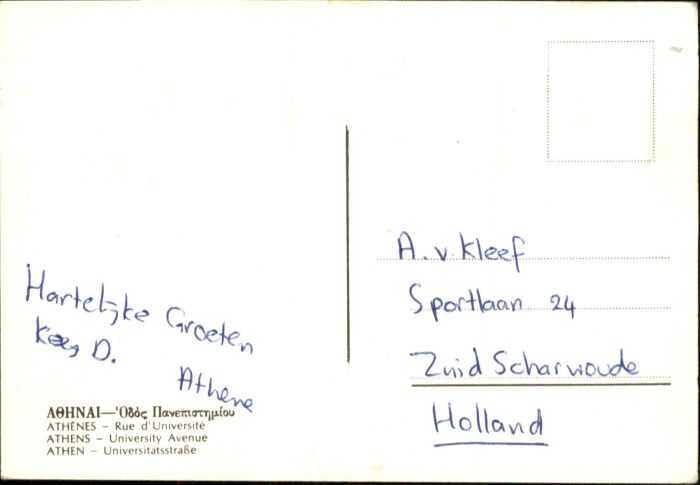 Hartelijke Groeten
Kees D.
Athene
ΑΘΗΝΑΙ—Ὁδός Πανεπιστημίου
ATHÈNES – Rue d'Université
ATHENS – University Avenue
ATHEN – Universitätsstraße
A. v. Kleef
Sportlaan 24
Zuid Scharwoude
Holland